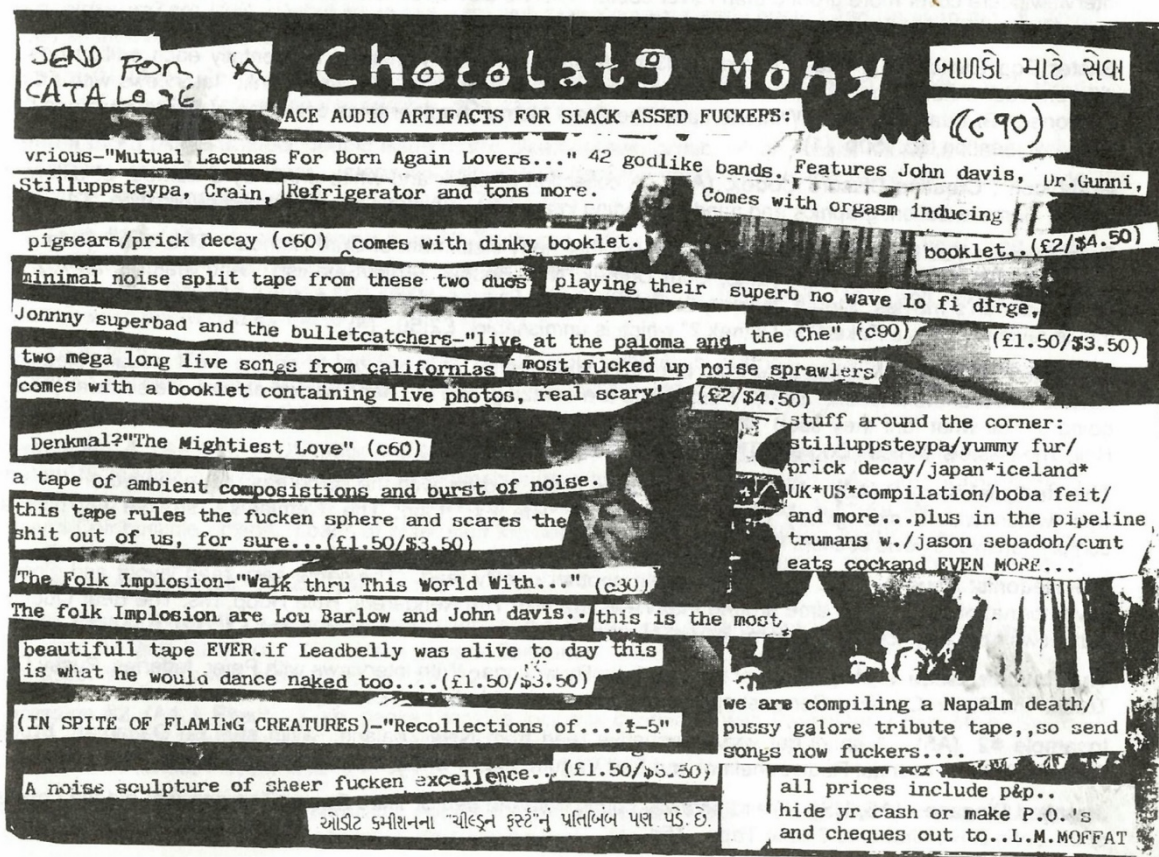 SEND FOR A
CATALOGE
Chocolate Monk
બાળકો માટે સેવા
ACE AUDIO ARTIFACTS FOR SLACK ASSED FUCKERS:
(C90)
vrious-"Mutual Lacunas For Born Again Lovers..." 42 godlike bands. Features John davis, Dr.Gunni,
Stilluppsteypa, Crain, Refrigerator and tons more. Comes with orgasm inducing
booklet..(£2/$4.50)
pigsears/prick decay (c60) comes with dinky booklet.
minimal noise split tape from these two duos playing their superb no wave lo fi dirge,
(£1.50/$3.50)
Jonnny superbad and the bulletcatchers-"live at the paloma and the Che" (c90)
two mega long live songs from californias most fucked up noise sprawlers
comes with a booklet containing live photos, real scary! (£2/$4.50)
Denkmal?"The Mightiest Love" (c60)
a tape of ambient composistions and burst of noise.
this tape rules the fucken sphere and scares the
shit out of us, for sure...(£1.50/$3.50)
The Folk Implosion-"Walk thru This World With..." (c30)
The folk Implosion are Lou Barlow and John davis.. this is the most
beautifull tape EVER.if Leadbelly was alive to day this
is what he would dance naked too....(£1.50/$3.50)
(IN SPITE OF FLAMING CREATURES)-"Recollections of....I-5"
A noise sculpture of sheer fucken excellence.. (£1.50/$3.50)
ઓડીટ કમીશનના "ચીલ્ડ્રન ફર્સ્ટ"નું પ્રતિબિંબ પણ પડે છે.
stuff around the corner:
stilluppsteypa/yummy fur/
prick decay/japan*iceland*
UK*US*compilation/boba feit/
and more...plus in the pipeline
trumans w./jason sebadoh/cunt
eats cockand EVEN MORE...
we are compiling a Napalm death/
pussy galore tribute tape,,so send
songs now fuckers....
all prices include p&p..
hide yr cash or make P.O.'s
and cheques out to..L.M.MOFFAT